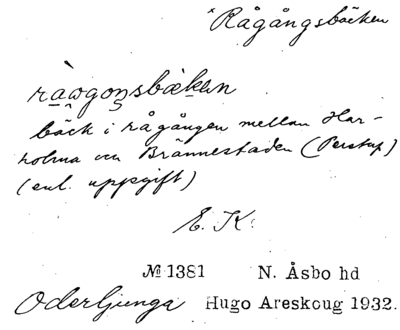 *Rågångsbäcken
ra̱wgoŋsbæ̀ken
bäck i rågången mellan Har-
holma och Brännestaden (Perstorp)
(enl. uppgift)
E. K.
№ 1381 N. Åsbo hd
Oderljunga Hugo Areskoug 1932.